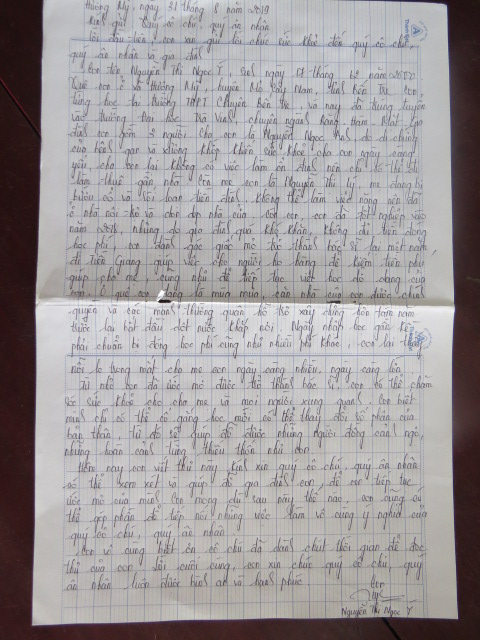 Hương Mỹ, ngày 31 tháng 8 năm 2019
Kính gửi: Quý cô chú, quý ân nhân
Lời đầu tiên, con xin gửi lời chúc sức khỏe đến quý cô chú,
quý ân nhân và gia đình
Con tên Nguyễn Thị Ngọc Ý, sinh ngày 01 tháng 12 năm 2000
Quê con ở xã Hương Mỹ, huyện Mỏ Cày Nam, tỉnh Bến Tre. Con
từng học tại trường THPT Chuyên Bến Tre, và nay đã trúng tuyển
vào trường Đại học Trà Vinh, chuyên ngành Răng - Hàm - Mặt. Gia
đình con gồm 2 người cha con là Nguyễn Ngọc do di chứng
của bệnh gan và xương khớp khiến sức khỏe cha con ngày càng
yếu, cha con lại không có việc làm ổn định nên chỉ có thể đi
làm thuê gần nhà. Còn mẹ con là Nguyễn Thị Lý, mẹ đang bị
bướu cổ và rối loạn tiền đình, không thể làm việc nặng nên đã
ở nhà nội trợ và dọn dẹp nhà cửa. Còn con, con đã tốt nghiệp vào
năm 2018, nhưng do gia đình quá khó khăn, không đủ tiền đóng
học phí, con đành gác giấc mơ trở thành bác sĩ lại một năm,
đi Tiền Giang giúp việc cho người họ hàng để kiếm tiền phụ
giúp cha mẹ, cũng như để tiếp tục việc học dở dang của
con. Ở quê con đang là mùa mưa, căn nhà của con được chính
quyền và các mạnh thường quân hỗ trợ xây dựng hơn tám năm
trước lại bắt đầu dột nước khắp nơi. Ngày nhập học gần kề
phải chuẩn bị đóng học phí cũng như nhiều phí khác, con lại thấy
nỗi lo trong mắt cha mẹ con ngày càng nhiều, ngày càng lớn.
Từ nhỏ con đã ước mơ được trở thành bác sĩ, con có thể chăm
sóc sức khỏe cho cha mẹ và mọi người xung quanh. Con biết
mình chỉ có thể cố gắng học mới có thể thay đổi số phận của
bản thân. Từ đó sẽ giúp đỡ được những người đồng cảnh ngộ,
những hoàn cảnh từng thiếu thốn như con.
Hôm nay con viết thư này, kính xin quý cô chú, quý ân nhân
có thể xem xét và giúp đỡ gia đình con, để con tiếp tục
ước mơ của mình. Con mong dù sau này thế nào, con cũng có
thể góp phần để tiếp nối những việc làm vô cùng ý nghĩa của
quý cô chú, quý ân nhân.
Con vô cùng biết ơn cô chú đã dành chút thời gian để đọc
thư của con. Lời cuối cùng, con xin chúc quý cô chú, quý
ân nhân luôn được bình an và hạnh phúc.
Con
Nguyễn Thị Ngọc Ý